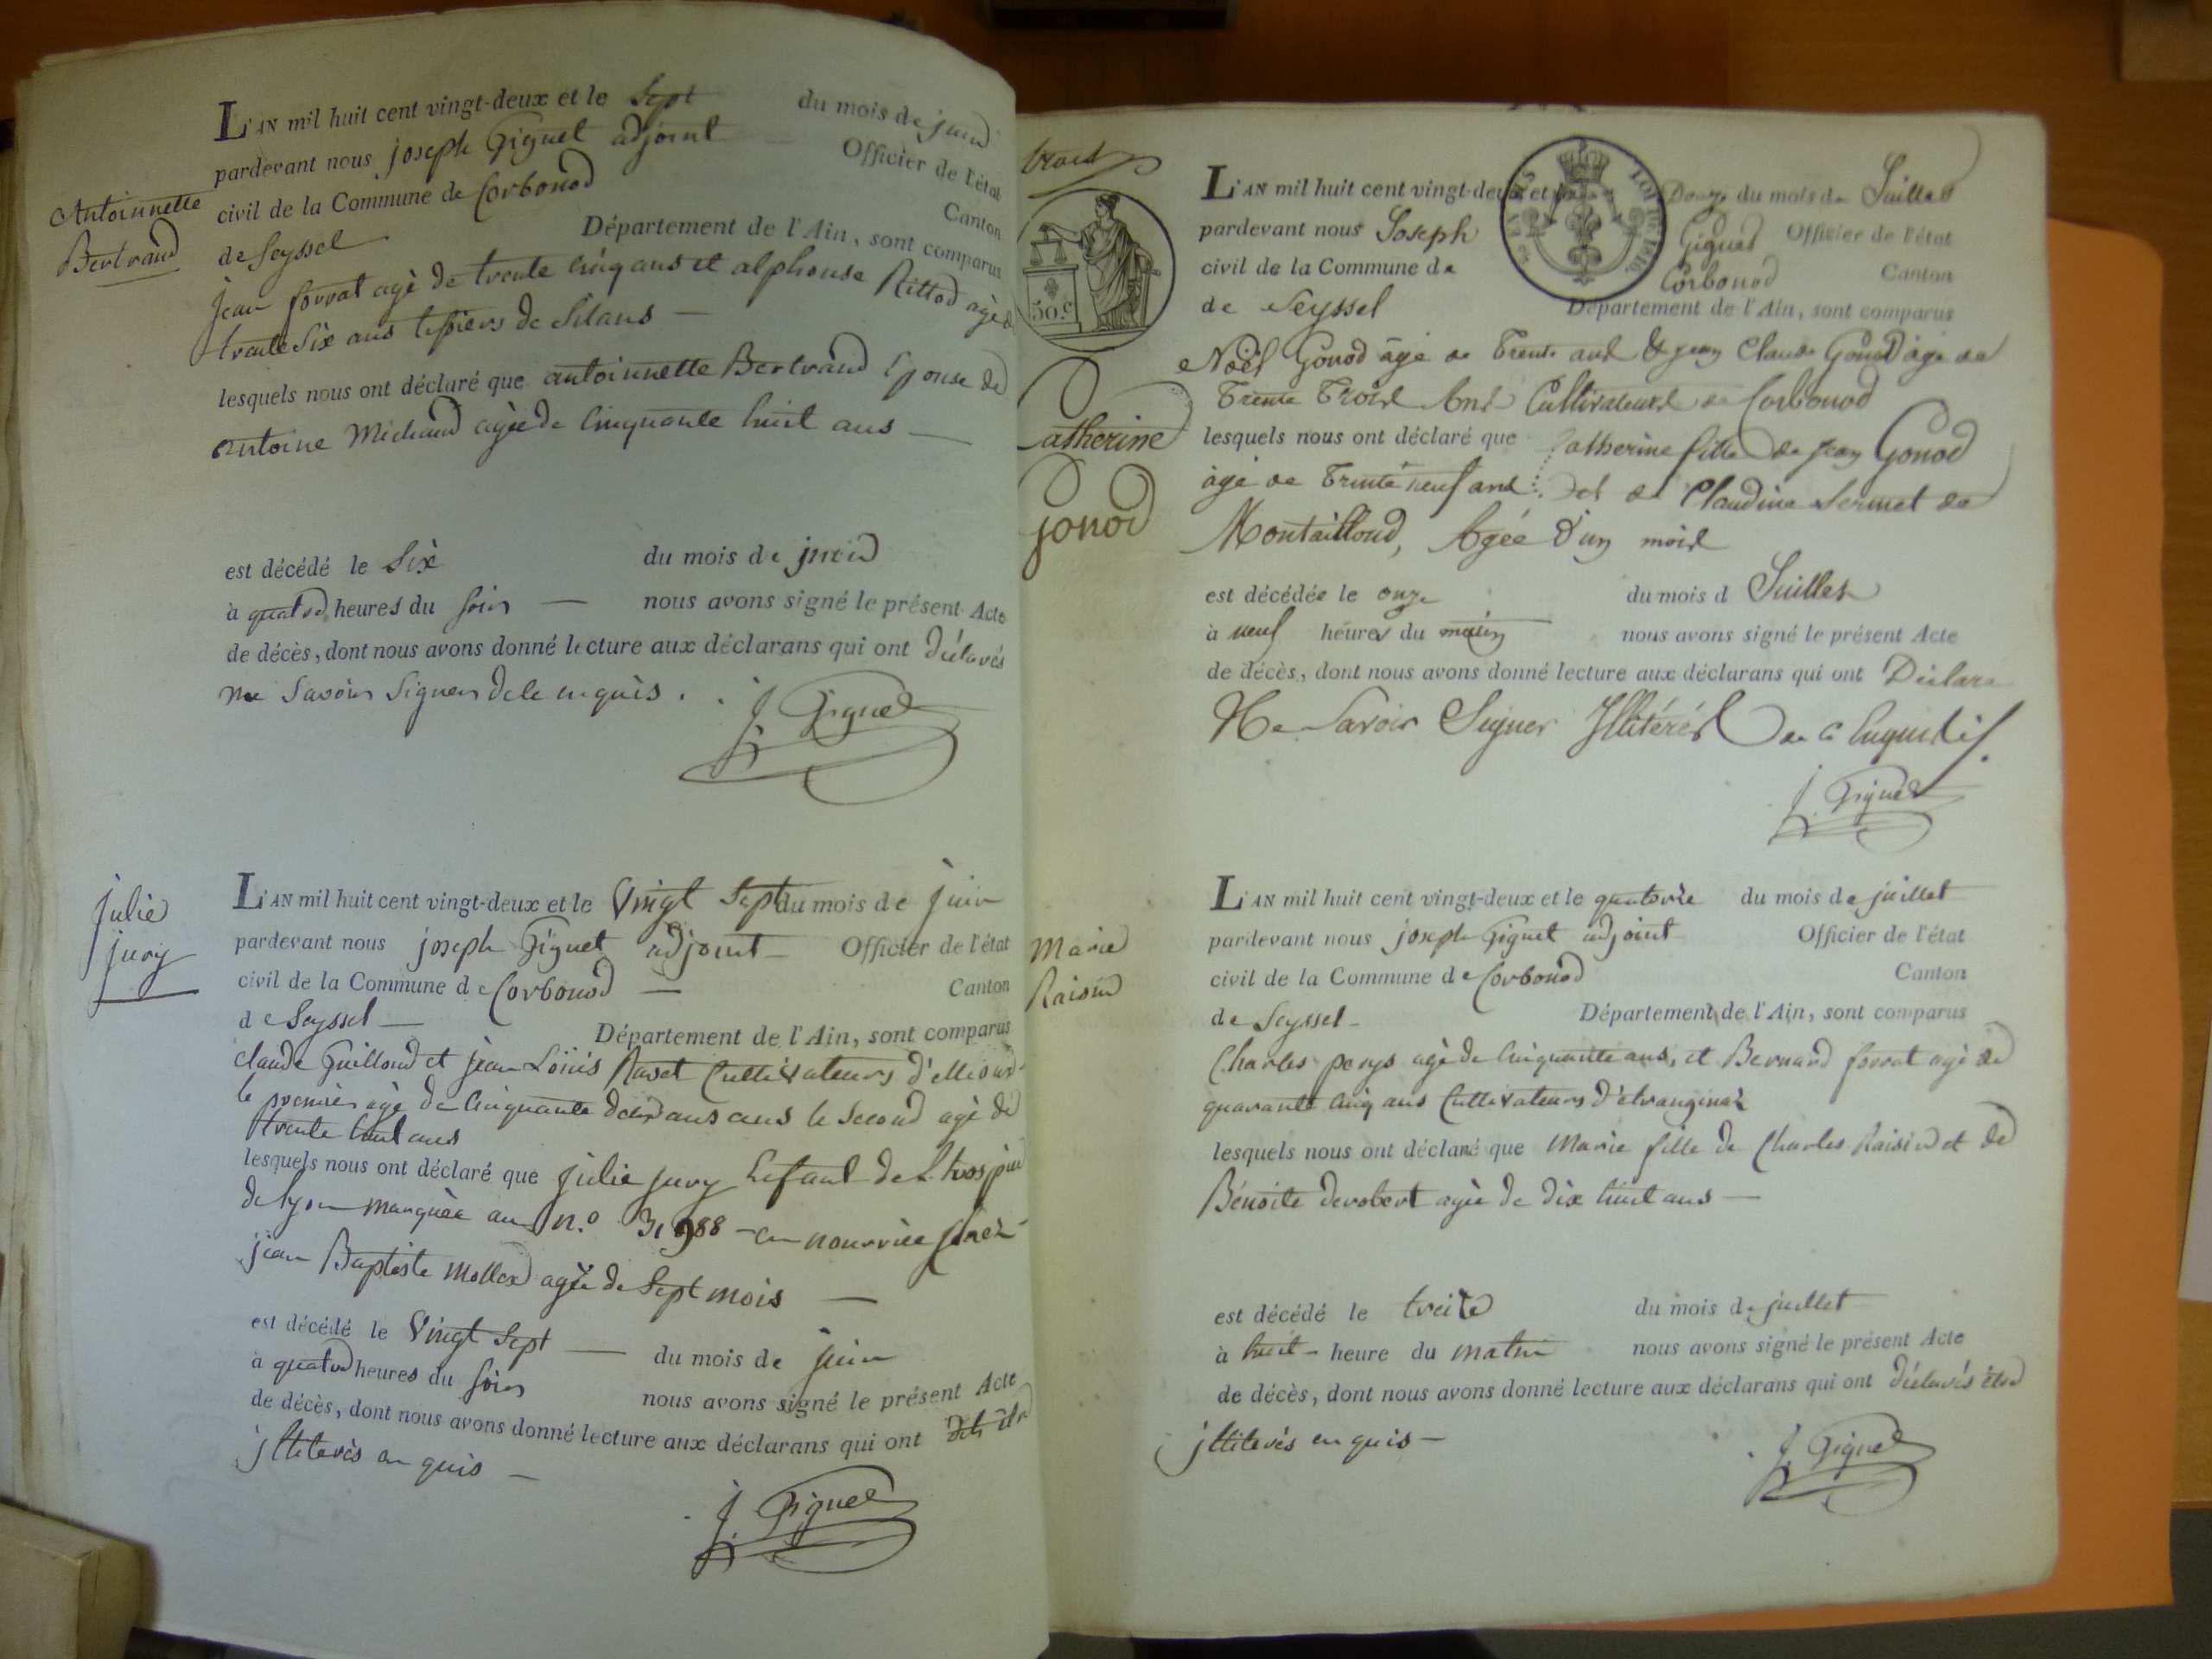 L'AN mil huit cent vingt-deux et le Sept du mois de juin
pardevant nous joseph Giguet adjoint Officier de l'état
civil de la Commune de Corbonod Canton
de Seyssel Département de l'Ain, sont comparus
Antoinnette
Bertrand
jean forrat agè de trente cinq ans et alphonse Rittod agè de
trente Six ans tissiers de Silans —
lesquels nous ont déclaré que antoinnette Bertrand Epouse de
antoine Michaud agèe de Cinquante huit ans —
est décédé le Six du mois de juin
à quatre heures du Soir — nous avons signé le présent Acte
de décès, dont nous avons donné lecture aux déclarans qui ont déclarés
ne Savoir Signer de le enquis.
J. Giguet
julie
jury
L'AN mil huit cent vingt-deux et le Vingt Sept du mois de juin
pardevant nous joseph Giguet adjoint — Officier de l'état
civil de la Commune de Corbonod — Canton
de Seyssel — Département de l'Ain, sont comparus
claude Guilloud et jean Loüis Ravet Cultivateurs
le premier agè de Cinquante deux ans ans le Second agè de
trente huit ans
lesquels nous ont déclaré que julie jury Enfant de L'hospice
de lyon marquèe au n.º 31988 — en nourrice chez
jean Baptiste Mollex agèe de Sept mois —
est décédé le Vingt Sept — du mois de juin
à quatre heures du Soir nous avons signé le présent Acte
de décès, dont nous avons donné lecture aux déclarans qui ont
jlliterès en quis —
J. Giguet
trois
50.c
LOI DE 1816.
L'AN mil huit cent vingt-deux et le Douze du mois de Juillet
pardevant nous Joseph Giguet Officier de l'état
civil de la Commune de Corbonod Canton
de Seyssel Département de l'Ain, sont comparus
Catherine
gonod
Noël Gonod âgé de Trente ans & jean Claude Gonod âgé de
Trente Trois Ans Cultivateurs de Corbonod
lesquels nous ont déclaré que Catherine fille de jean Gonod
âgé de Trente neuf ans et de Claudine Sermet de
Montailloud, Agée d'un mois
est décédée le onze du mois d Juillet
à neuf heures du matin nous avons signé le présent Acte
de décès, dont nous avons donné lecture aux déclarans qui ont Déclare
Ne Savoir Signer Illitérés de ce Enquis /.
J. Giguet
Marie
Raisin
L'AN mil huit cent vingt-deux et le quatorze du mois de juillet
pardevant nous joseph Giguet adjoint Officier de l'état
civil de la Commune de Corbonod Canton
de Seyssel — Département de l'Ain, sont comparus
Charles perys agè de Cinquante ans, et Bernard forrat agè de
quarante cinq ans Cultivateurs d'étranginaz
lesquels nous ont déclaré que Marie fille de Charles Raisin et de
Bénoite derobert agèe de dix huit ans —
est décédé le treize du mois de juillet
à huit — heure du matin nous avons signé le présent Acte
de décès, dont nous avons donné lecture aux déclarans qui ont déclarés être
jlliterés en quis —
J. Giguet